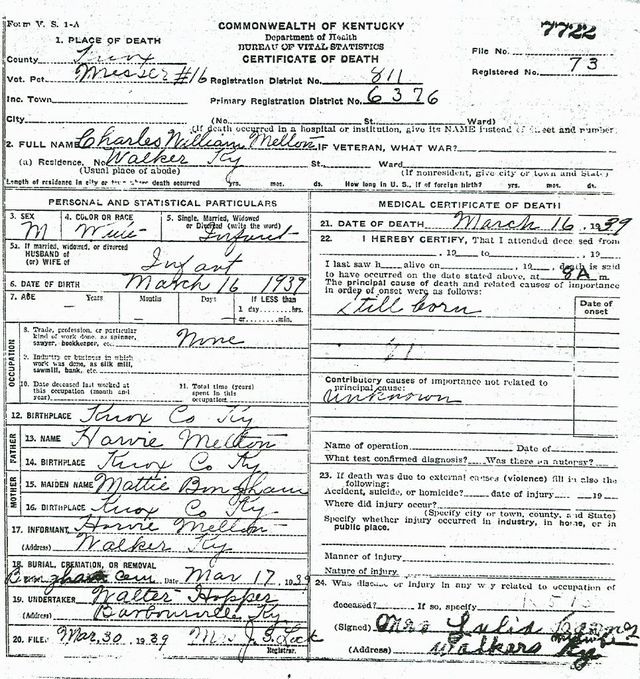 Form V. S. 1-A
COMMONWEALTH OF KENTUCKY
Department of Health
BUREAU OF VITAL STATISTICS
CERTIFICATE OF DEATH
7722
File No.
Registered No. 73
1. PLACE OF DEATH
County Knox
Vot. Pct. Messer #16 Registration District No. 811
Inc. Town Primary Registration District No. 6376
City (No. St. Ward)
(If death occurred in a hospital or institution, give its NAME instead of street and number)
2. FULL NAME Charles William Mellon IF VETERAN, WHAT WAR?
(a) Residence, No. Walker Ky St. Ward
(Usual place of abode) (If nonresident, give city or town and State)
Length of residence in city or town where death occurred yrs. mos. ds. How long in U. S., if of foreign birth? yrs. mos. ds.
PERSONAL AND STATISTICAL PARTICULARS
3. SEX 4. COLOR OR RACE 5. Single, Married, Widowed
or Divorced (write the word)
M White Infant
5a. If married, widowed, or divorced
HUSBAND of
(or) WIFE of Infant
6. DATE OF BIRTH March 16 1939
7. AGE Years Months Days If LESS than
1 day hrs.
or min.
OCCUPATION
8. Trade, profession, or particular
kind of work done, as spinner,
sawyer, bookkeeper, etc. None
9. Industry or business in which
work was done, as silk mill,
sawmill, bank, etc.
10. Date deceased last worked at
this occupation (month and
year)
11. Total time (years)
spent in this
occupation
12. BIRTHPLACE Knox Co Ky
FATHER
13. NAME Harvie Mellon
14. BIRTHPLACE Knox Co Ky
MOTHER
15. MAIDEN NAME Mattie Bingham
16. BIRTHPLACE Knox Co Ky
17. INFORMANT Harvie Mellon
(Address) Walker Ky
18. BURIAL, CREMATION, OR REMOVAL
Bingham Cem Date Mar 17, 1939
19. UNDERTAKER Walter Hopper
(Address) Barbourville Ky
20. FILED Mar. 30, 1939 Mrs J. G.
Registrar.
MEDICAL CERTIFICATE OF DEATH
21. DATE OF DEATH March 16, 1939
22. I HEREBY CERTIFY, That I attended deceased from
, 19 to , 19
I last saw h alive on , 19 , death is said
to have occurred on the date stated above, at 8A m.
The principal cause of death and related causes of importance
in order of onset were as follows:
Date of
onset
Still born
Contributory causes of importance not related to
principal cause:
unknown
Name of operation Date of
What test confirmed diagnosis? Was there an autopsy?
23. If death was due to external causes (violence) fill in also the
following:
Accident, suicide, or homicide? date of injury 19
Where did injury occur?
(Specify city or town, county, and State)
Specify whether injury occurred in industry, in home, or in
public place.
Manner of injury
Nature of injury
24. Was disease or injury in any way related to occupation of
deceased? If so, specify
(Signed) Mrs Julia
(Address) Walkers Ky